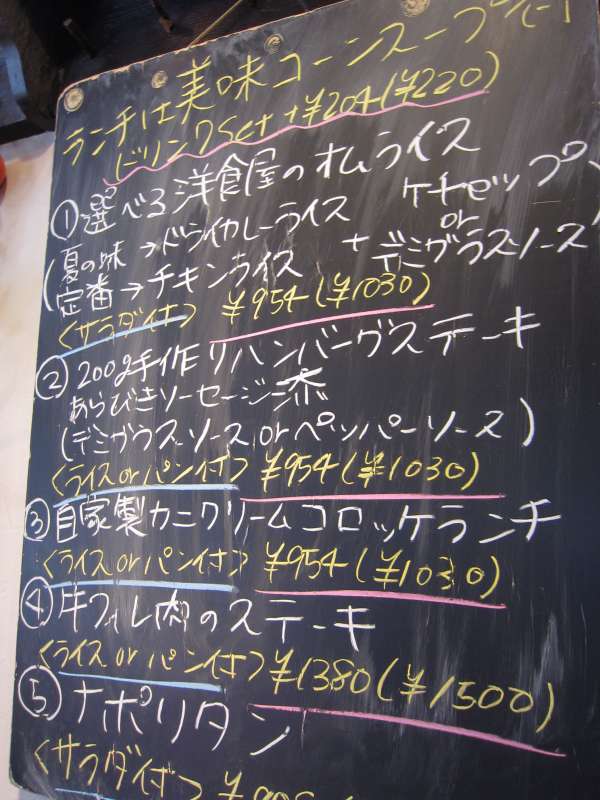 ランチは美味コーンスープ付
ドリンクSet +¥204(¥220)
①選べる洋食屋のオムライス
(夏の味→ドライカレーライス ケチャップ)
定番→チキンライス + or デミグラスソース
<サラダ付> ¥954(¥1030)
②200g手作りハンバーグステーキ
あらびきソーセージ添
(デミグラスソース or ペッパーソース)
<ライス or パン付> ¥954(¥1030)
③自家製カニクリームコロッケランチ
<ライス or パン付> ¥954(¥1030)
④牛フィレ肉のステーキ
<ライス or パン付> ¥1380(¥1500)
⑤ナポリタン
<サラダ付> ¥